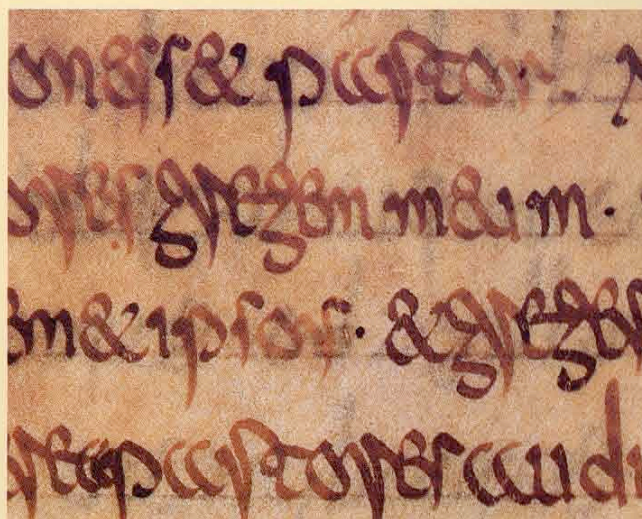 oness& pastor. n
ores gregem meum·
em&ipsos· &greges
reapastores audi